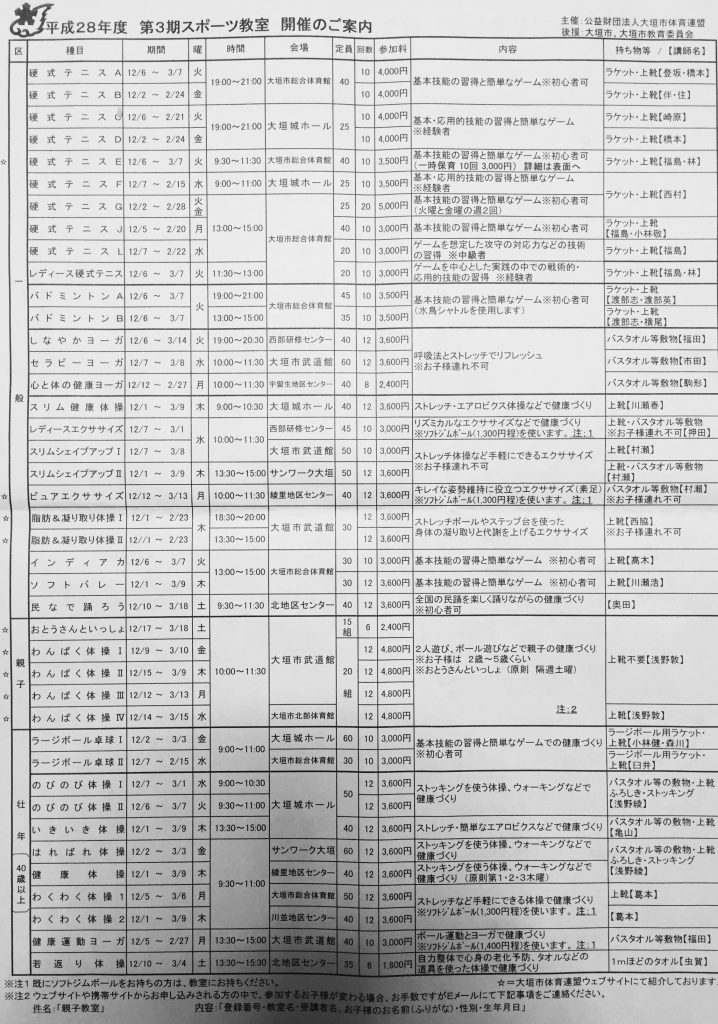 平成28年度 第3期スポーツ教室 開催のご案内
主催：公益財団法人大垣市体育連盟
後援：大垣市、大垣市教育委員会
区 種目 期間 曜 時間 会場 定員 回数 参加料 内容 持ち物等 /【講師名】
一般
硬式テニスA 12/6 ～ 3/7 火 19:00～21:00 大垣市総合体育館 40 10 4,000円 基本技能の習得と簡単なゲーム※初心者可 ラケット・上靴【登坂・橋本】
硬式テニスB 12/2 ～ 2/24 金 10 4,000円 ラケット・上靴【伴・住】
硬式テニスC 12/6 ～ 2/21 火 19:00～21:00 大垣城ホール 25 10 4,000円 基本・応用的技能の習得と簡単なゲーム ※経験者 ラケット・上靴【崎原】
硬式テニスD 12/2 ～ 2/24 金 10 4,000円 ラケット・上靴【橋本】
☆ 硬式テニスE 12/6 ～ 3/7 火 9:30～11:30 大垣市総合体育館 40 10 3,500円 基本技能の習得と簡単なゲーム※初心者可 (一時保育 10回 3,000円) 詳細は表面へ ラケット・上靴【福島・林】
硬式テニスF 12/7 ～ 2/15 水 9:00～11:00 大垣城ホール 25 10 3,500円 基本・応用的技能の習得と簡単なゲーム ※経験者 ラケット・上靴【西村】
硬式テニスG 12/2 ～ 2/28 火金 13:00～15:00 大垣市総合体育館 25 20 5,000円 基本技能の習得と簡単なゲーム※初心者可 (火曜と金曜の週2回)
硬式テニスJ 12/5 ～ 2/20 月 40 10 3,000円 基本技能の習得と簡単なゲーム※初心者可 ラケット・上靴【福島・小林敬】
硬式テニスL 12/7 ～ 2/22 水 20 10 3,000円 ゲームを想定した攻守の対応力などの技術の習得 ※中級者 ラケット・上靴【福島】
レディース硬式テニス 12/6 ～ 3/7 火 11:30～13:00 20 10 3,000円 ゲームを中心とした実践の中での戦術的・応用的技能の習得 ※経験者 ラケット・上靴【福島・林】
バドミントンA 12/6 ～ 3/7 火 19:00～21:00 大垣市総合体育館 45 10 3,500円 基本技能の習得と簡単なゲーム※初心者可 (水鳥シャトルを使用します) ラケット・上靴【渡部志・渡部英】
バドミントンB 12/6 ～ 3/7 13:00～15:00 35 10 3,500円 ラケット・上靴【渡部志・横尾】
しなやかヨーガ 12/6 ～ 3/14 火 19:00～20:30 西部研修センター 40 12 3,600円 呼吸法とストレッチでリフレッシュ ※お子様連れ不可 バスタオル等敷物【福田】
セラピーヨーガ 12/7 ～ 3/8 水 10:00～11:30 大垣市武道館 60 12 3,600円 バスタオル等敷物【市田】
心と体の健康ヨーガ 12/12 ～ 2/27 月 10:00～11:30 宇留生地区センター 40 8 2,400円 バスタオル等敷物【駒形】
スリム健康体操 12/1 ～ 3/9 木 9:00～10:30 大垣城ホール 40 12 3,600円 ストレッチ・エアロビクス体操などで健康づくり 上靴【川瀬春】
レディースエクササイズ 12/7 ～ 3/1 水 10:00～11:30 西部研修センター 45 10 3,000円 リズミカルなエクササイズなどで健康づくり ※ソフトジムボール(1,300円程)を使います。 注:1 上靴・バスタオル等敷物 ※お子様連れ不可【押田】
スリムシェイプアップⅠ 12/7 ～ 3/8 大垣市武道館 50 10 3,000円 ストレッチ体操など手軽にできるエクササイズ ※お子様連れ不可 上靴【村瀬】
スリムシェイプアップⅡ 12/1 ～ 3/9 木 13:30～15:00 サンワーク大垣 50 12 3,600円 上靴・バスタオル等敷物【村瀬】
☆ ピュアエクササイズ 12/12 ～ 3/13 月 10:00～11:30 綾里地区センター 40 12 3,600円 キレイな姿勢維持に役立つエクササイズ(素足) ※ソフトジムボール(1,300円程)を使います。 注:1 バスタオル等敷物【村瀬】 ※お子様連れ不可
☆ 脂肪&凝り取り体操Ⅰ 12/1 ～ 2/23 木 18:30～20:00 大垣市武道館 30 12 3,600円 ストレッチポールやステップ台を使った身体の凝り取りと代謝を上げるエクササイズ 上靴【西脇】 ※お子様連れ不可
☆ 脂肪&凝り取り体操Ⅱ 12//1 ～ 2/23 13:30～15:00 12 3,600円
インディアカ 12/6 ～ 3/7 火 13:00～15:00 大垣市総合体育館 30 10 3,000円 基本技能の習得と簡単なゲーム ※初心者可 上靴【高木】
ソフトバレー 12/1 ～ 3/9 木 30 12 3,600円 基本技能の習得と簡単なゲーム ※初心者可 上靴【川瀬浩】
民なで踊ろう 12/10 ～ 3/18 土 9:30～11:30 北地区センター 40 12 3,600円 全国の民謡を楽しく踊りながらの健康づくり ※初心者可 【奥田】
親子
☆ おとうさんといっしょ 12/17 ～ 3/18 土 10:00～11:30 大垣市武道館 15組 6 2,400円 2人遊び、ボール遊びなどで親子の健康づくり ※お子様は 2歳～5歳くらい ※おとうさんといっしょ (原則 隔週土曜) 注:2 上靴不要【浅野敦】
☆ わんぱく体操Ⅰ 12/9 ～ 3/10 金 20組 12 4,800円
☆ わんぱく体操Ⅱ 12/15 ～ 3/9 木 12 4,800円
☆ わんぱく体操Ⅲ 12/12 ～ 3/13 月 12 4,800円
☆ わんぱく体操Ⅳ 12/14 ～ 3/15 水 大垣市北部体育館 12 4,800円 上靴【浅野敦】
壮年 40歳以上
ラージボール卓球Ⅰ 12/2 ～ 3/3 金 9:00～11:00 大垣城ホール 60 10 3,000円 基本技能の習得と簡単なゲームでの健康づくり ※初心者可 ラージボール用ラケット・上靴【小林健・森川】
ラージボール卓球Ⅱ 12/7 ～ 2/15 水 大垣市総合体育館 30 10 3,000円 ラージボール用ラケット・上靴【臼井】
のびのび体操Ⅰ 12/7 ～ 3/1 水 9:00～10:30 大垣城ホール 50 12 3,600円 ストッキングを使う体操、ウォーキングなどで健康づくり バスタオル等の敷物・上靴 ふろしき・ストッキング【浅野綾】
のびのび体操Ⅱ 12/6 ～ 3/7 火 9:30～11:00 12 3,600円
いきいき体操 12/1 ～ 3/9 木 13:30～15:00 40 12 3,600円 ストレッチ・簡単なエアロビクスなどで健康づくり バスタオル等の敷物・上靴【亀山】
はればれ体操 12/2 ～ 3/3 金 9:30～11:00 サンワーク大垣 60 12 3,600円 ストッキングを使う体操、ウォーキングなどで健康づくり バスタオル等の敷物・上靴 ふろしき・ストッキング【浅野綾】
健康体操 12/1 ～ 3/9 木 綾里地区センター 40 12 3,600円 ストッキングを使う体操、ウォーキングなどで健康づくり (原則第1・2・3木曜)
わくわく体操1 12/5 ～ 3/6 月 大垣市総合体育館 50 12 3,600円 ストレッチなど手軽にできる体操で健康づくり ※ソフトジムボール(1,300円程)を使います。 注:1 上靴【葛本】
わくわく体操2 12/1 ～ 3/9 木 川並地区センター 40 12 3,600円 【葛本】
健康運動ヨーガ 12/5 ～ 2/27 月 13:30～15:00 大垣市武道館 40 10 3,000円 ボール運動とヨーガで健康づくり ※ソフトジムボール(1,400円程)を使います。 注:1 バスタオル等敷物【福田】
若返り体操 12/10 ～ 3/4 土 13:30～15:30 北地区センター 35 6 1,800円 自力整体で心身の老化予防、タオルなどの道具を使った体操で健康づくり 1mほどのタオル【虫賀】
※注1 既にソフトジムボールをお持ちの方は、教室にお持ちください。 ☆＝大垣市体育連盟ウェブサイトにて紹介しております。
※注2 ウェブサイトや携帯サイトからお申し込みされる方の中で、参加するお子様が変わる場合、お手数ですがEメールにて下記事項をご連絡ください。
件名：「親子教室」 内容：「登録番号・教室名・受講者名、お子様のお名前(ふりがな)・性別・生年月日」